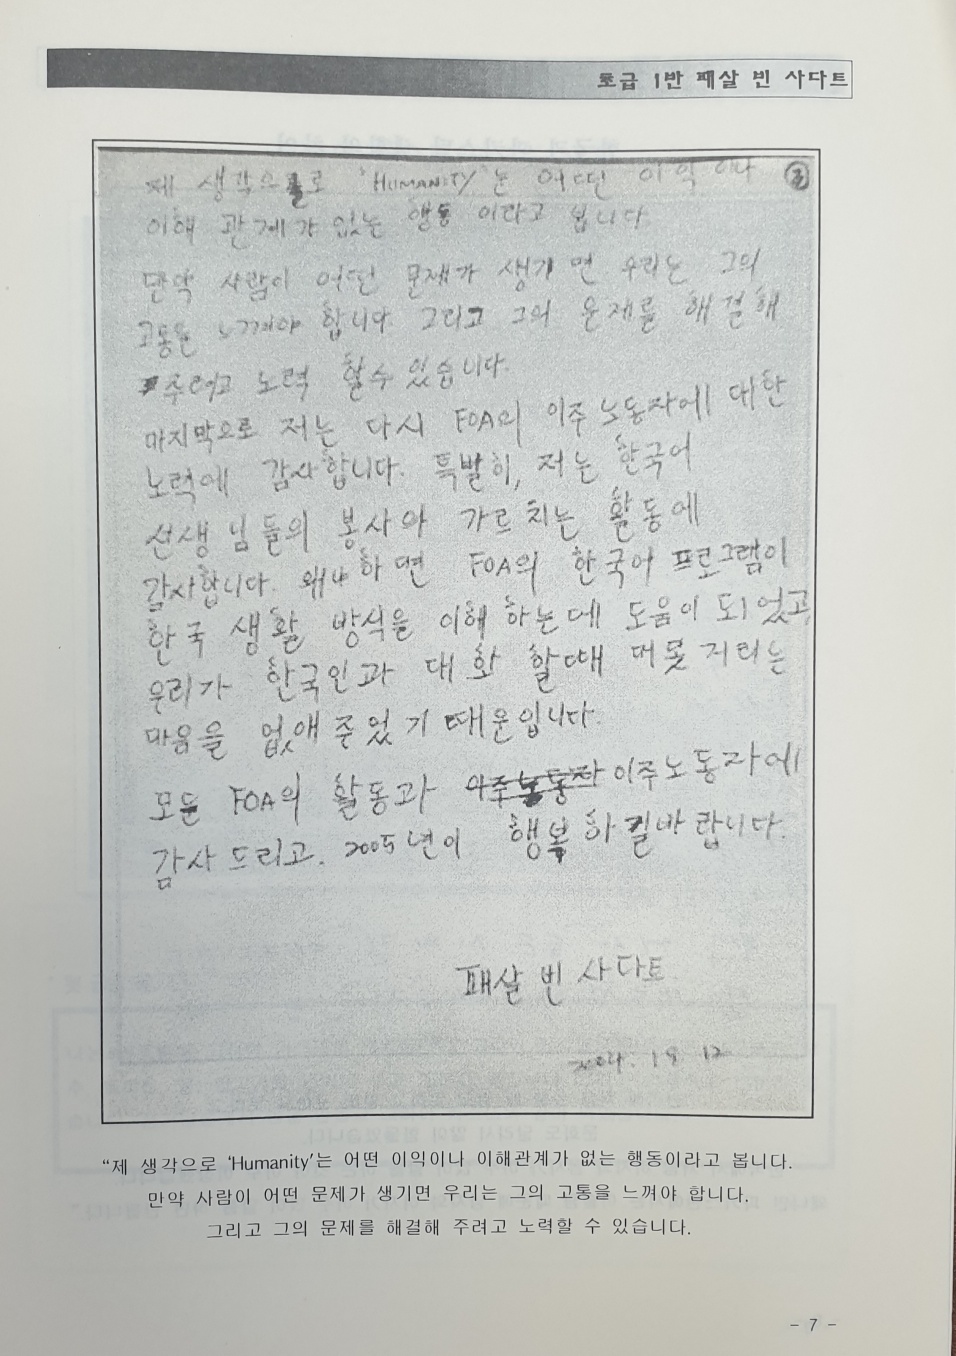 초급 1반 패살 빈 사다트
제 생각으로 'HUMANITY'는 어떤 이익이나 ③
이해 관계가 없는 행동 이라고 봅니다.
만약 사람이 어떤 문제가 생기면 우리는 그의
고통을 느껴야 합니다. 그리고 그의 문제를 해결해
주려고 노력 할수 있습니다.
마지막으로 저는 다시 FOA의 이주 노동자에 대한
노력에 감사합니다. 특별히, 저는 한국어
선생님들의 봉사와 가르치는 활동에
감사합니다. 왜냐하면 FOA의 한국어 프로그램이
한국 생활 방식을 이해 하는데 도움이 되었고,
우리가 한국인과 대화 할때 머뭇거리는
마음을 없애 주었기 때문입니다.
모든 FOA의 활동과 이주노동자 이주노동자에
감사드리고. 2005년이 행복하길바랍니다.
패살 빈 사다트
2004.
"제 생각으로 'Humanity'는 어떤 이익이나 이해관계가 없는 행동이라고 봅니다.
만약 사람이 어떤 문제가 생기면 우리는 그의 고통을 느껴야 합니다.
그리고 그의 문제를 해결해 주려고 노력할 수 있습니다.
- 7 -